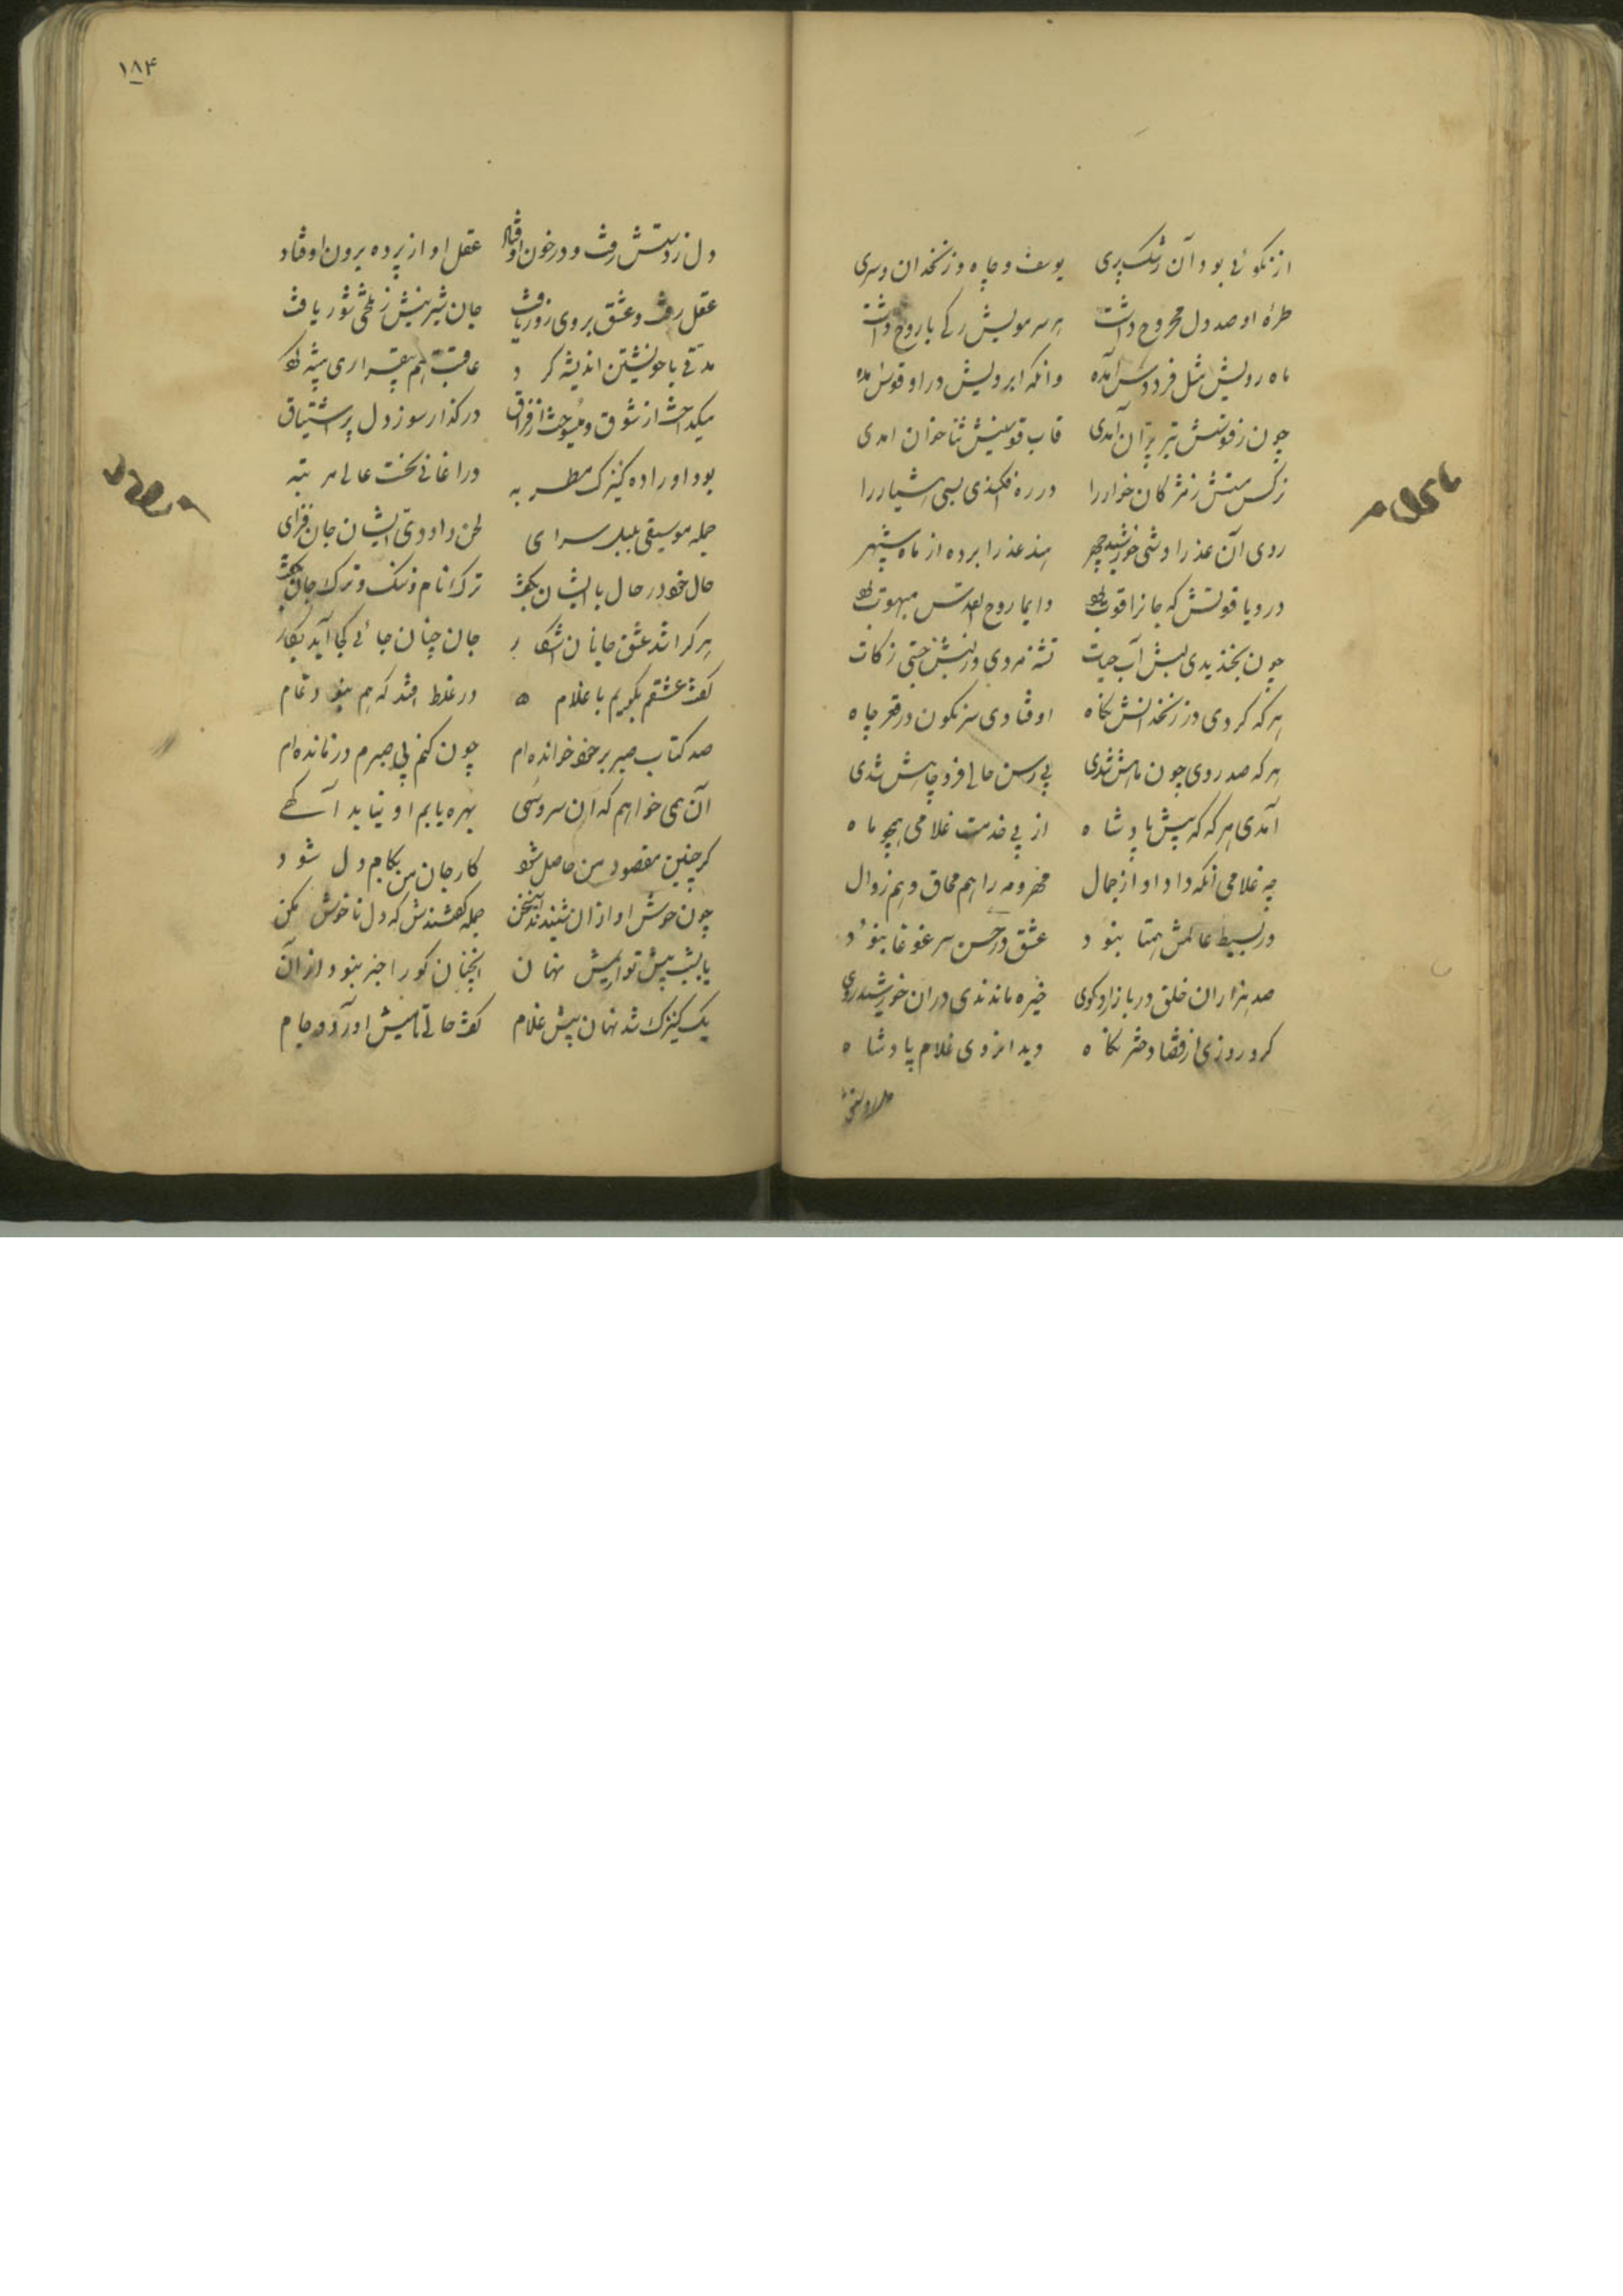 از نکوئی بود آن رشک پری یوسف و چاه و زنخدان و سری
طرهٔ او صد دل مجروح داشت هر سر مویش رگی با روح داشت
ماه رویش مثل فردوس آمده وانگه ابرویش در او قوس آمده
چون ز قوسش تیر پران آمدی قاب قوسینش ثناخوان آمدی
نرگس مستش ز مژگان خوار را در ره افکندی بسی هشیار را
روی آن عذرا وشی خورشید چهر هفده عذرا برده از ماه سپهر
در و یاقوتش که جان را قوت بود دایما روح القدس مبهوت بود
چون بخندیدی لبش آب حیات تشنه مردی وز لبش جستی زکات
هر که کردی در زنخدانش نگاه اوفتادی سرنگون در قعر چاه
هر که صد روی چون ماهش شدی بی رسن حالی فرو چاهش شدی
آمدی هر که که پیش پادشاه از پی خدمت غلامی همچو ماه
چه غلامی آنکه داد او از جمال مهر و مه را هم محاق و هم زوال
در بسیط عالمش همتا نبود عشق در حسن سر غوغا نبود
صد هزاران خلق در بازار و کوی خیره ماندندی در آن خورشید روی
کرد روزی از قضا دختر نگاه دید از روی غلام پادشاه
۱۸۴
دل ز دستش رفت و در خون اوفتاد عقل او از پرده برون اوفتاد
عقل رفت و عشق بر وی زور یافت جان شیرینش ز تلخی شور یافت
مدتی با خویشتن اندیشه کرد عاقبت هم بیقراری پیشه کرد
میگداخت از شوق و میسوخت از فراق در گذار سوز دل پر اشتیاق
بود او را ده کنیزک مطربه در اغانی سخت عالی مرتبه
جمله موسیقی بلبل سرای لحن داودی ایشان جان فزای
حال خود در حال با ایشان بگفت ترک نام و ننگ و ترک جان بگفت
هر کرا شد عشق جانان آشکار جان چنان جائی کجا آید بکار
گفت عشقم بگویم با غلام در غلط افتد که هم نبود تمام
صد کتاب صبر بر خود خوانده‌ام چون کنم بی صبرم و درمانده‌ام
آن همی خواهم که آن سرو سهی بهره یابم او نیابد آگهی
گر چنین مقصود من حاصل شود کار جان من بکام دل شود
چون خوش آوازان شنیدند این سخن جمله گفتندش که دل ناخوش مکن
ما بشب پیش تو آریمش نهان آنچنان کو را خبر نبود از آن
یک کنیزک شد نهان پیش غلام گفت حالی تا میش آورد و جام